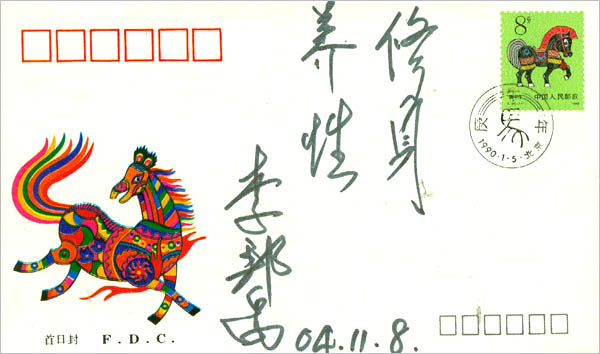 8分
中国人民邮政
庚午年
1990·1·5·北京
修身
养性
李邦禹
04.11.8.
首日封 F.D.C.